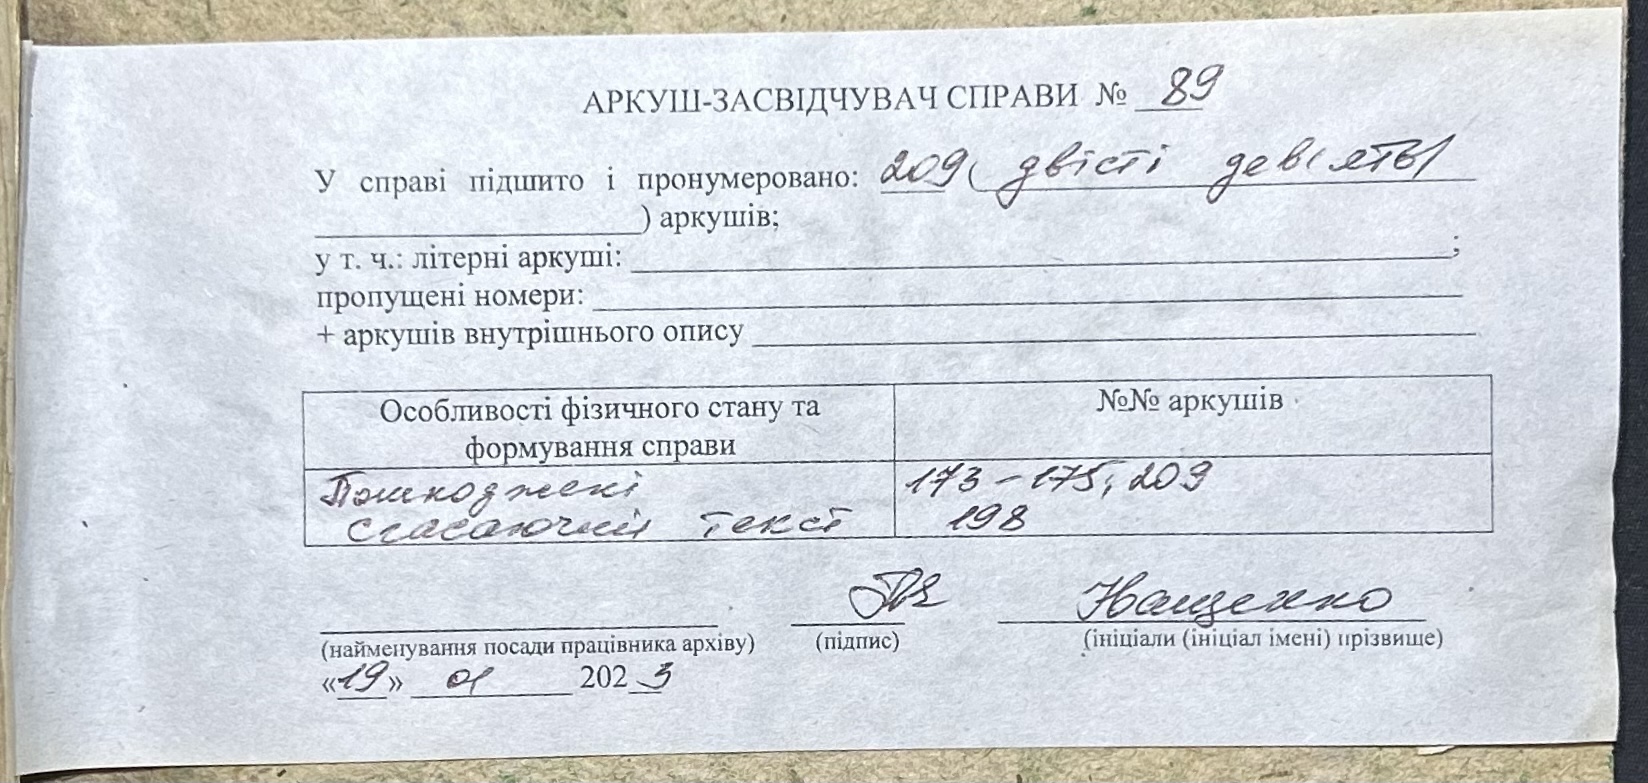 АРКУШ-ЗАСВІДЧУВАЧ СПРАВИ № 89
У справі підшито і пронумеровано: 209 ( двісті дев'ять
) аркушів;
у т. ч.: літерні аркуші: ;
пропущені номери:
+ аркушів внутрішнього опису
Особливості фізичного стану та формування справи
№№ аркушів
Пошкоджені 173-175, 209
згасаючий текст 198
(найменування посади працівника архіву) (підпис) (ініціали (ініціал імені) прізвище)
«19» 01 2023